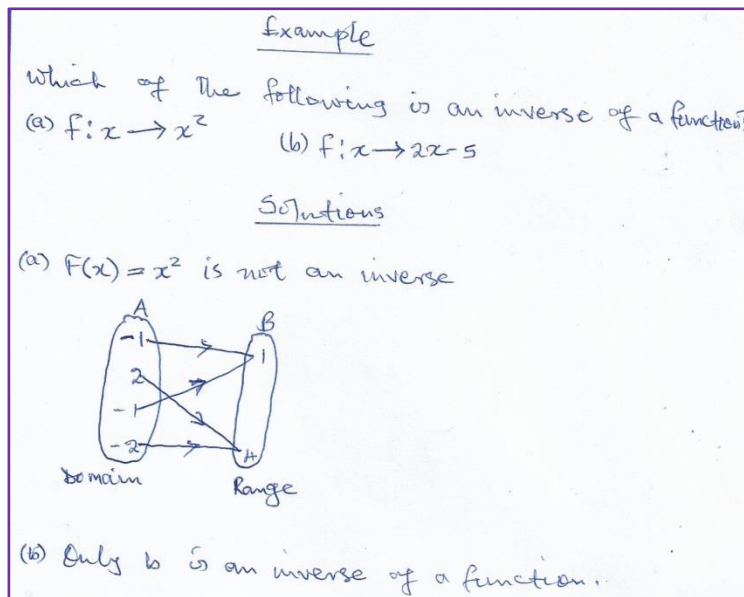 Example
Which of the following is an inverse of a function?
(a) f:x → x²
(b) f:x → 2x-5
Solutions
(a) F(x) = x² is not an inverse
A
B
-1
1
2
-1
-2
4
Domain
Range
(b) Only b is an inverse of a function.